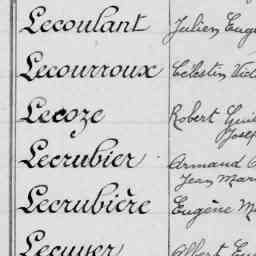 Lecoulant Julien
Lecourroux Célestin
Lecoze Robert
Lecrubier Armand
Jean
Lecrubière Eugène
Lecuyer Albert